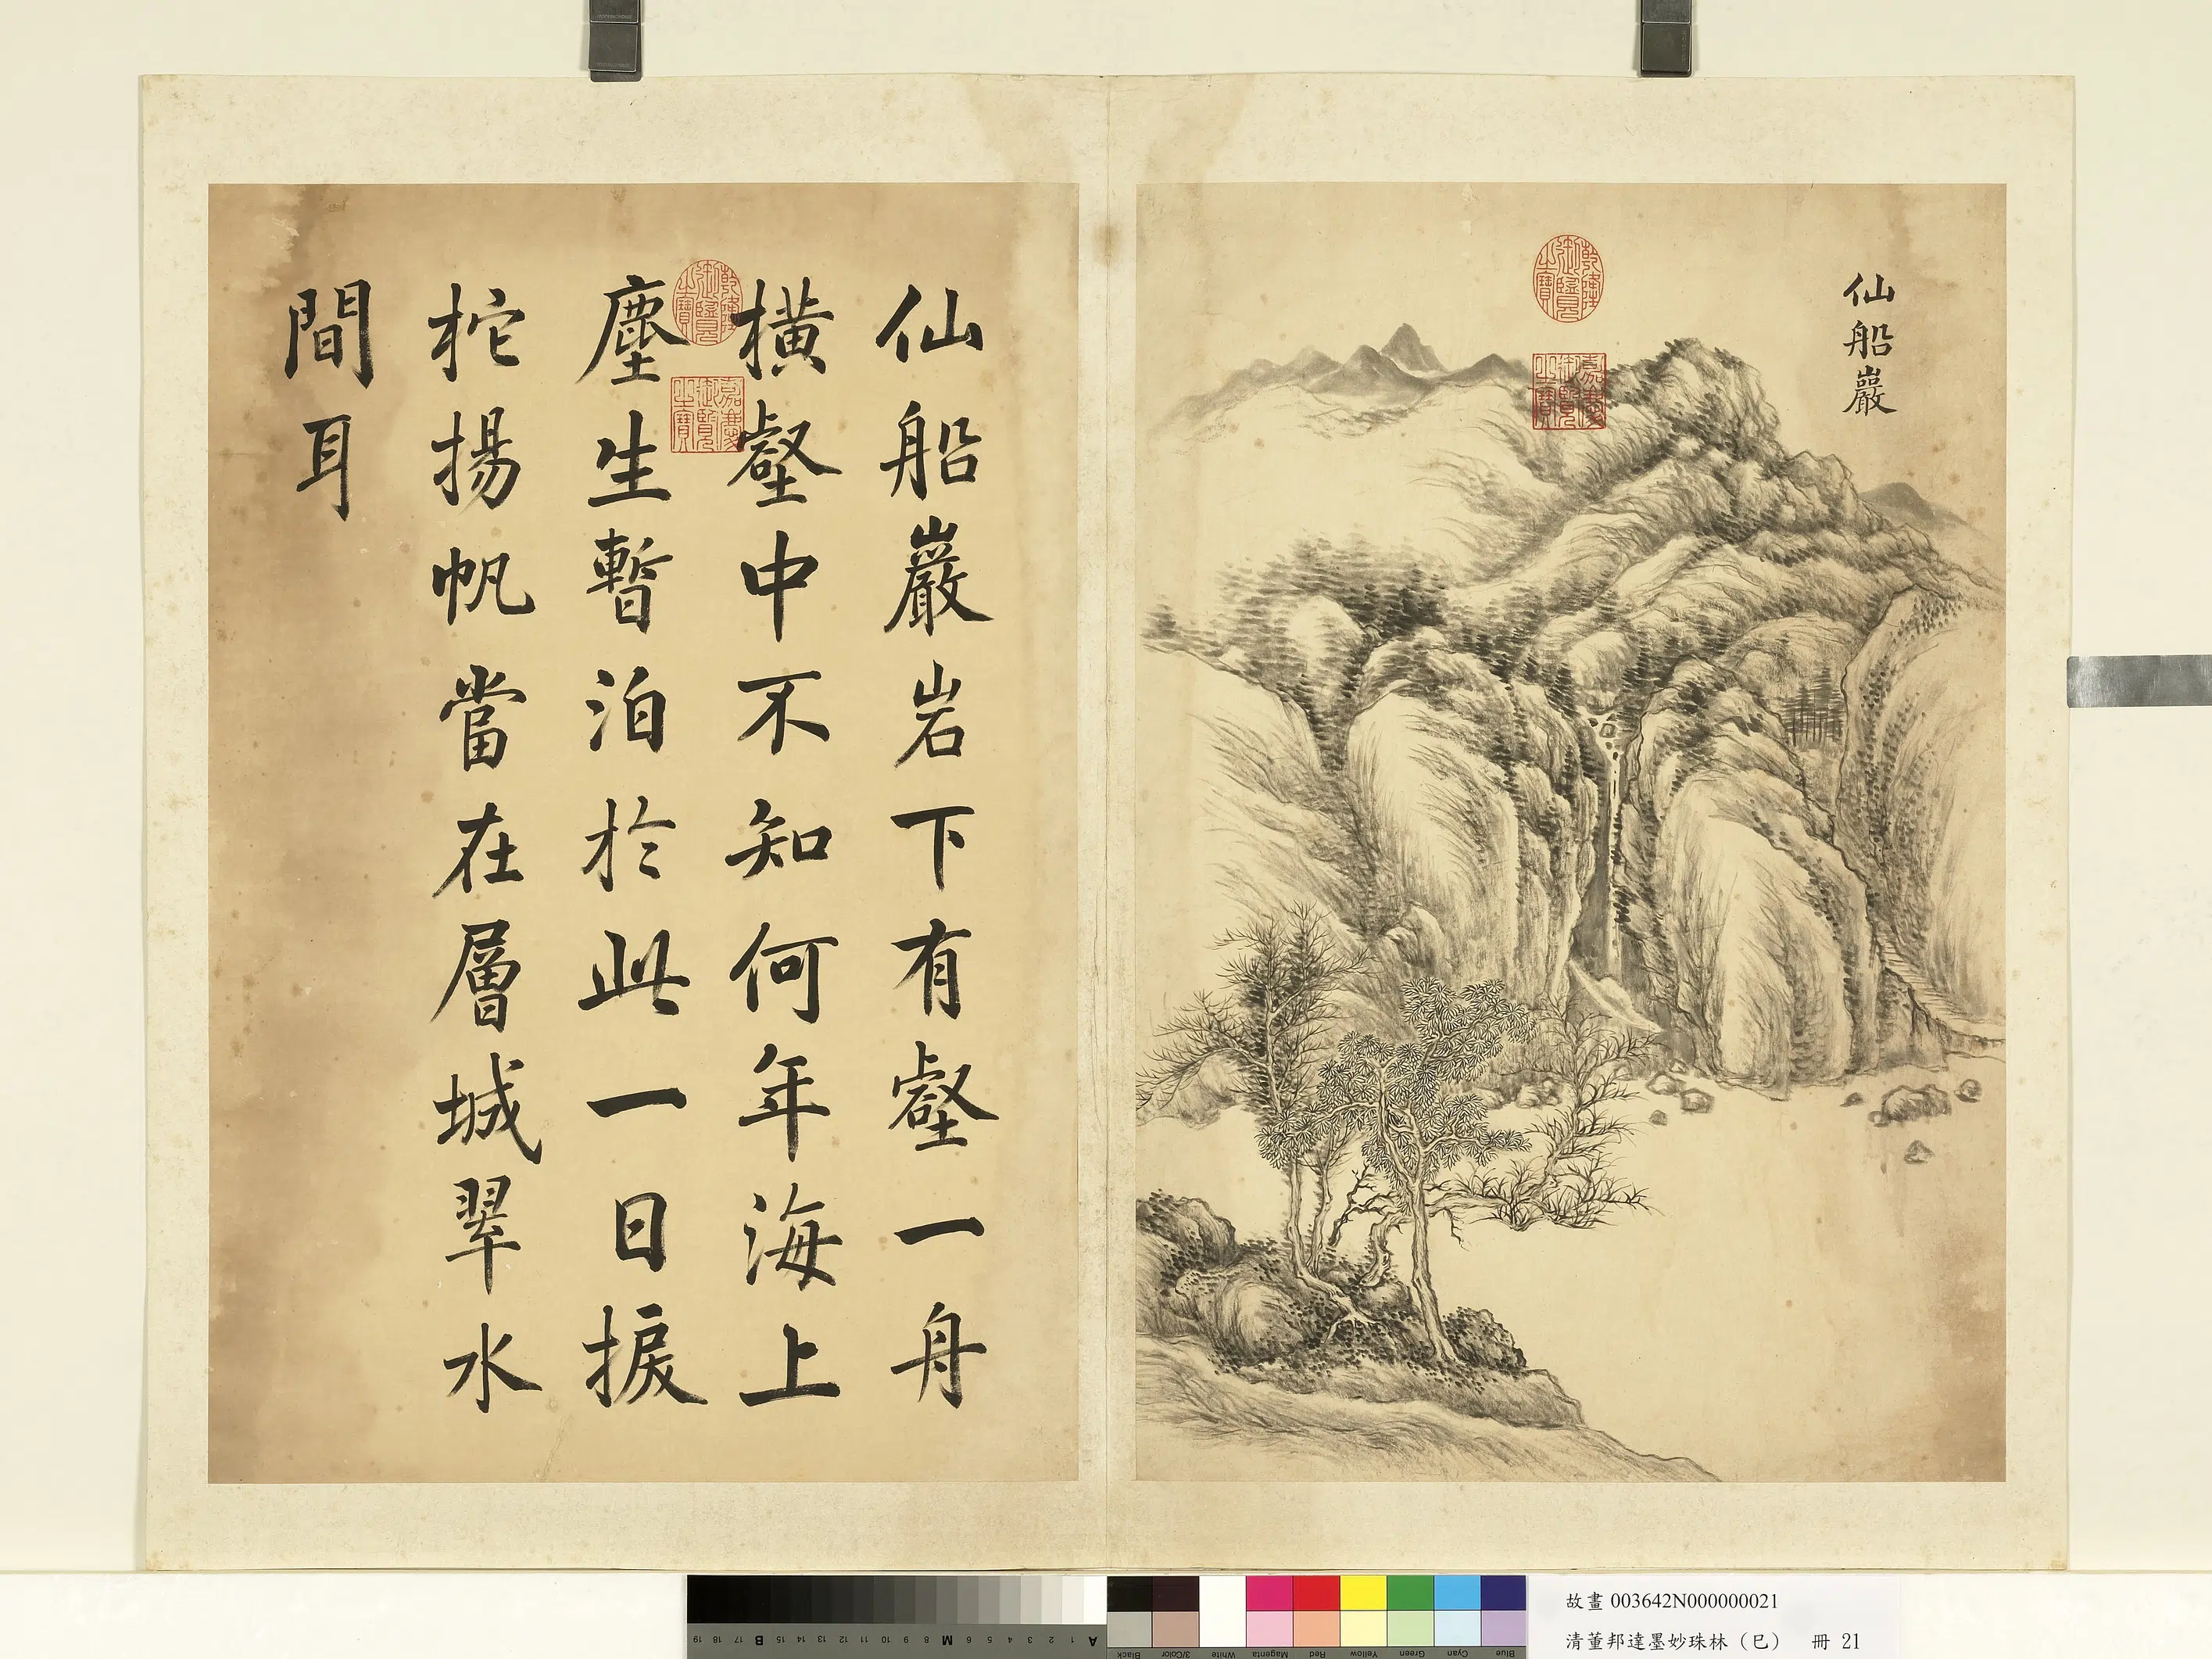 仙船巖
乾隆御覽之寶
嘉慶御覽之寶
仙船巖岩下有壑一舟
橫壑中不知何年海上
塵生暫泊於此一日捩
柁揚帆當在層城翠水
間耳
乾隆御覽之寶
嘉慶御覽之寶
19 18 17 B 16 15 14 13 12 11 10 9 8 M 7 6 5 4 3 2 1 A
Black 3/Color White Magenta Red Yellow Green Cyan Blue
故畫 003642N000000021
清董邦達墨妙珠林（巳） 冊 21